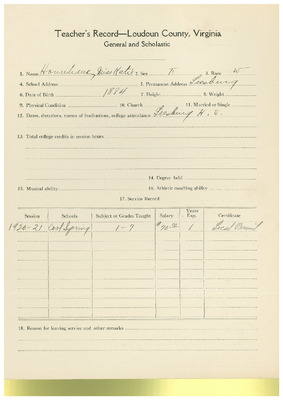 Teacher's Record—Loudoun County, Virginia
General and Scholastic
1. Name Miss Katie 2. Sex F 3. Race W
4. School Address 5. Permanent Address Leesburg
6. Date of Birth 1884 7. Height 8. Weight
9. Physical Condition 10. Church 11. Married or Single
12. Dates, durations, names of graduations, college attendance Leesburg H. S.
13. Total college credits in session hours
14. Degree held
15. Musical ability 16. Athletic coaching ability
17. Service Record
Session Schools Subject or Grades Taught Salary Years Exp. Certificate
1920-21 Cool Spring 1-7 1 Local Permit
18. Reason for leaving service and other remarks